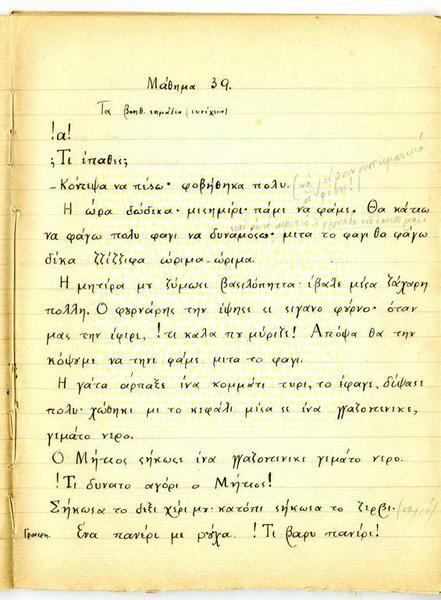 Μάθημα 39.
Τα βοηθ. σημάδια (συνέχεια)
!α!
;Τί έπαθες;
- Κόντεψα να πέσω· φοβήθηκα πολυ.
Η ώρα δώδεκα· μεσημέρι· πάμε να φάμε. Θα κάτσω
να φάγω πολυ φαγι να δυναμόσω· μετα το φαγι θα φάγω
δέκα τζίτζιφα ώριμα-ώριμα.
Η μητέρα μου ζύμωσε βασιλόπηττα· έβαλε μέσα ζάχαρη
πολλη. Ο φουρνάρης την έψησε σε σιγανο φούρνο· όταν
μας την έφερε, !τι καλα που μύριζε! Απόψα θα την
κόψουμε να τηνε φάμε μετα το φαγι.
Η γάτα άρπαξε ένα κομμάτι τυρι, το έφαγε, δίψασε
πολυ· χώθηκε με το κεφάλι μέσα σε ένα γκαζοντενεκε,
γεμάτο νερο.
Ο Μήτσος σήκωσε ένα γκαζοντενεκε γεμάτο νερο.
!Τι δυνατο αγόρι ο Μήτσος!
Σήκωσα το δεξι χέρι μου· κατόπι σήκωσα το ζερβι.
Γραφη. Ένα πανέρι με ρούχα. !Τι βαρυ πανέρι!